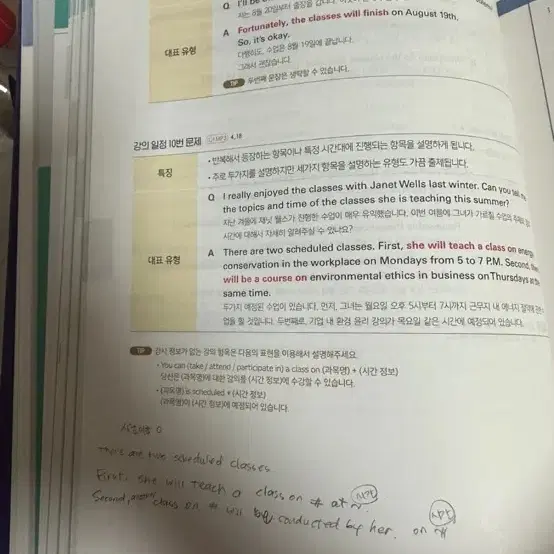 Q I'll be
저는 8월 20일부터 출장을 갑니다.
A Fortunately, the classes will finish on August 19th.
So, it's okay.
다행히도, 수업은 8월 19일에 끝납니다.
그래서 괜찮습니다.
대표 유형
TIP 두번째 문장은 생략할 수 있습니다.
강의 일정 10번 문제 MP3 4_18
특징
• 반복해서 등장하는 항목이나 특정 시간대에 진행되는 항목을 설명하게 됩니다.
• 주로 두가지를 설명하지만 세가지 항목을 설명하는 유형도 가끔 출제됩니다.
대표 유형
Q I really enjoyed the classes with Janet Wells last winter. Can you tell me
the topics and time of the classes she is teaching this summer?
지난 겨울에 재닛 웰스가 진행한 수업이 매우 유익했습니다. 이번 여름에 그녀가 가르칠 수업의
시간에 대해서 자세히 알려주실 수 있나요?
A There are two scheduled classes. First, she will teach a class on energy
conservation in the workplace on Mondays from 5 to 7 P.M. Second, there
will be a course on environmental ethics in business on Thursdays at the
same time.
두가지 예정된 수업이 있습니다. 먼저, 그녀는 월요일 오후 5시부터 7시까지 근무지 내 에너지 절약에 관한
업을 할 것입니다. 두번째로, 기업 내 환경 윤리 강의가 목요일 같은 시간에 예정되어 있습니다.
TIP 강사 정보가 없는 강의 항목은 다음의 표현을 이용해서 설명해주세요.
• You can (take / attend / participate in) a class on (과목명) + (시간 정보)
당신은 (과목명)에 대한 강의를 (시간 정보)에 수강할 수 있습니다.
• (과목명) is scheduled + (시간 정보)
(과목명)이 (시간 정보)에 예정되어 있습니다.
There are two scheduled classes.
First, she will teach a class on # at ~ 시간
Second, class on # will be conducted by her. on ~ 시간